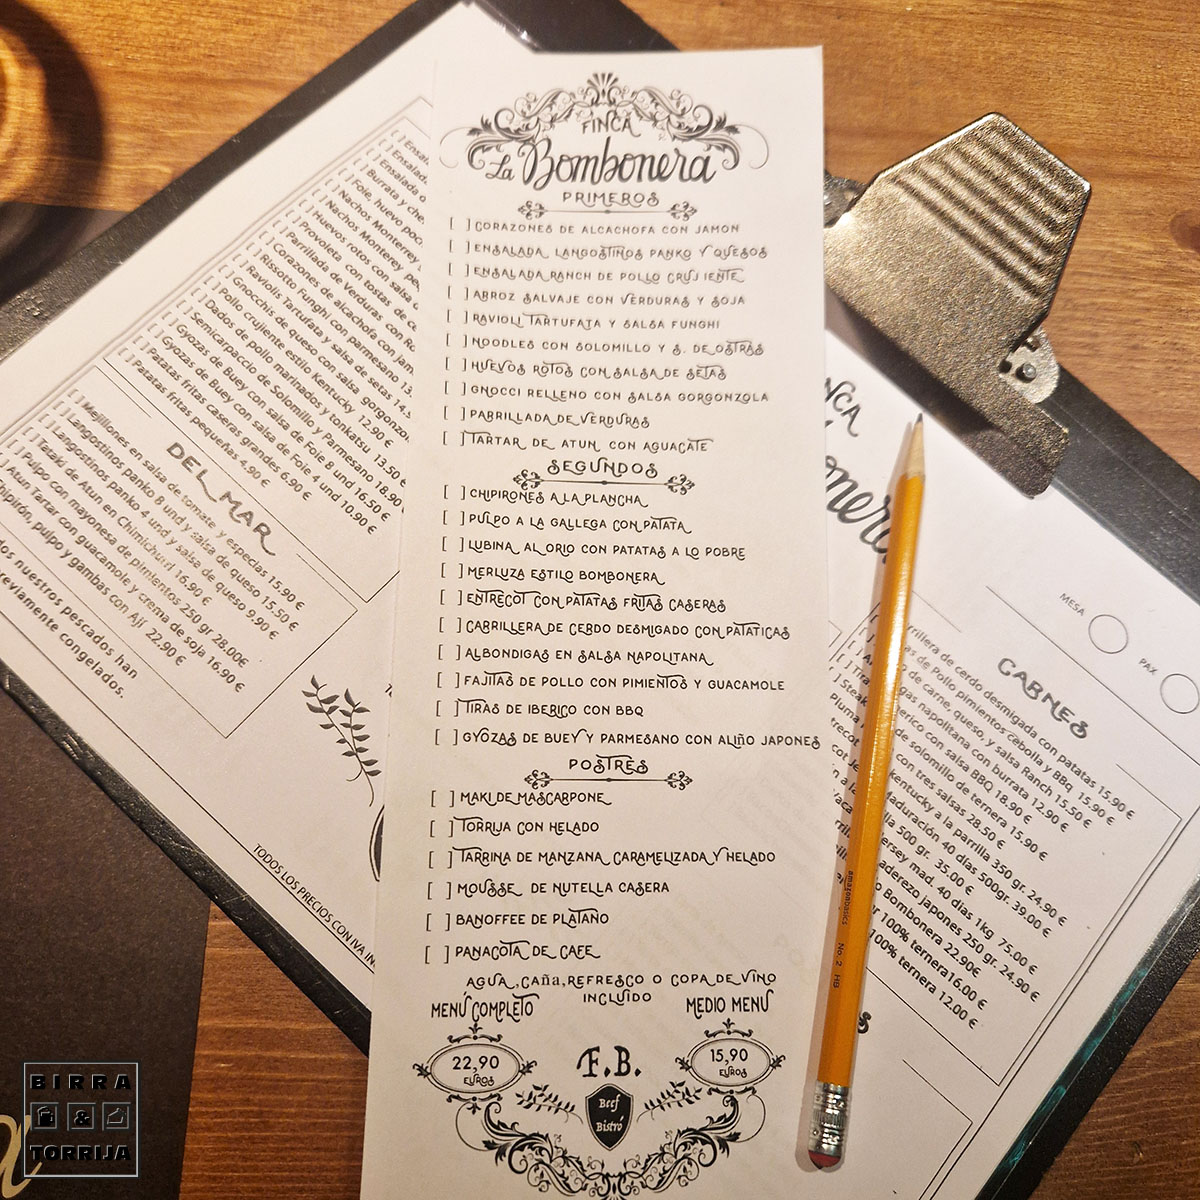 FINCA
La Bombonera
PRIMEROS
[ ] CORAZONES DE ALCACHOFA CON JAMON
[ ] ENSALADA, LANGOSTINOS PANKO Y QUESOS
[ ] ENSALADA RANCH DE POLLO CRUJIENTE
[ ] ARROZ SALVAJE CON VERDURAS Y SOJA
[ ] RAVIOLI TARTUFATA Y SALSA FUNGHI
[ ] NOODLES CON SOLOMILLO Y S. DE OSTRAS
[ ] HUEVOS ROTOS CON SALSA DE SETAS
[ ] GNOCCI RELLENO CON SALSA GORGONZOLA
[ ] PARRILLADA DE VERDURAS
[ ] TARTAR DE ATUN CON AGUACATE
SEGUNDOS
[ ] CHIPIRONES A LA PLANCHA
[ ] PULPO A LA GALLEGA CON PATATA
[ ] LUBINA AL ORIO CON PATATAS A LO POBRE
[ ] MERLUZA ESTILO BOMBONERA
[ ] ENTRECOT CON PATATAS FRITAS CASERAS
[ ] CARRILLERA DE CERDO DESMIGADO CON PATATICAS
[ ] ALBONDIGAS EN SALSA NAPOLITANA
[ ] FAJITAS DE POLLO CON PIMIENTOS Y GUACAMOLE
[ ] TIRAS DE IBERICO CON BBQ
[ ] GYOZAS DE BUEY Y PARMESANO CON ALIÑO JAPONES
POSTRES
[ ] MAKI DE MASCARPONE
[ ] TORRIJA CON HELADO
[ ] TARRINA DE MANZANA CARAMELIZADA Y HELADO
[ ] MOUSSE DE NUTELLA CASERA
[ ] BANOFFEE DE PLATANO
[ ] PANACOTA DE CAFE
AGUA, CAÑA, REFRESCO O COPA DE VINO
INCLUIDO
MENÚ COMPLETO
22,90
EUROS
MEDIO MENÚ
15,90
EUROS
F.B.
Beef
Bistró
Burrata y
Foie, huevo
Nachos Monterrey
Nachos Monterey
Huevos rotos con salsa
Provoleta con tostas de
Parrillada de Verduras con
Corazones de alcachofa con
Rissotto Funghi con parmesano
Raviolis Tartufata y salsa de setas
Gnocchis de queso con salsa
Pollo crujiente estilo Kentucky 12.90 €
Dados de pollo marinados y tonkatsu 13.50 €
Semicarpaccio de Solomillo y Parmesano 18.90
Gyozas de Buey con salsa de Foie 8 und 16.50 €
Gyozas de Buey con salsa de Foie 4 und 10.90 €
Patatas fritas caseras grandes 6.90 €
Patatas fritas pequeñas 4.90 €
DEL MAR
Mejillones en salsa de tomate y especias 15.90 €
Langostinos panko 8 und y salsa de queso 15.50 €
Langostinos panko 4 und y salsa de queso 9.90 €
Tataki de Atun en Chimichurri 16.90 €
Pulpo con mayonesa de pimientos 250 gr 28.00€
Atun Tartar con guacamole y crema de soja 16.90 €
pulpo y gambas con Ají 22.90 €
nuestros pescados han
congelados.
TODOS LOS PRECIOS CON IVA
MESA
PAX
CARNES
de cerdo desmigada con patatas 15.90 €
de Pollo pimientos cebolla y BBq 15.90 €
de carne, queso, y salsa Ranch 15.50 €
napolitana con burrata 12.90 €
con salsa BBQ 18.90 €
de solomillo de ternera 15.90 €
con tres salsas 28.50 €
kentucky a la parrilla 350 gr. 24.90 €
Maduración 40 dias 500gr. 39.00 €
500 gr. 35.00 €
mad. 40 dias 1kg 75.00 €
japones 250 gr. 24.90 €
Bombonera 22.90€
100% ternera 16.00 €
100% ternera 12.00 €
amazonbasics No 2 HB
BIRRA
&
TORRIJA